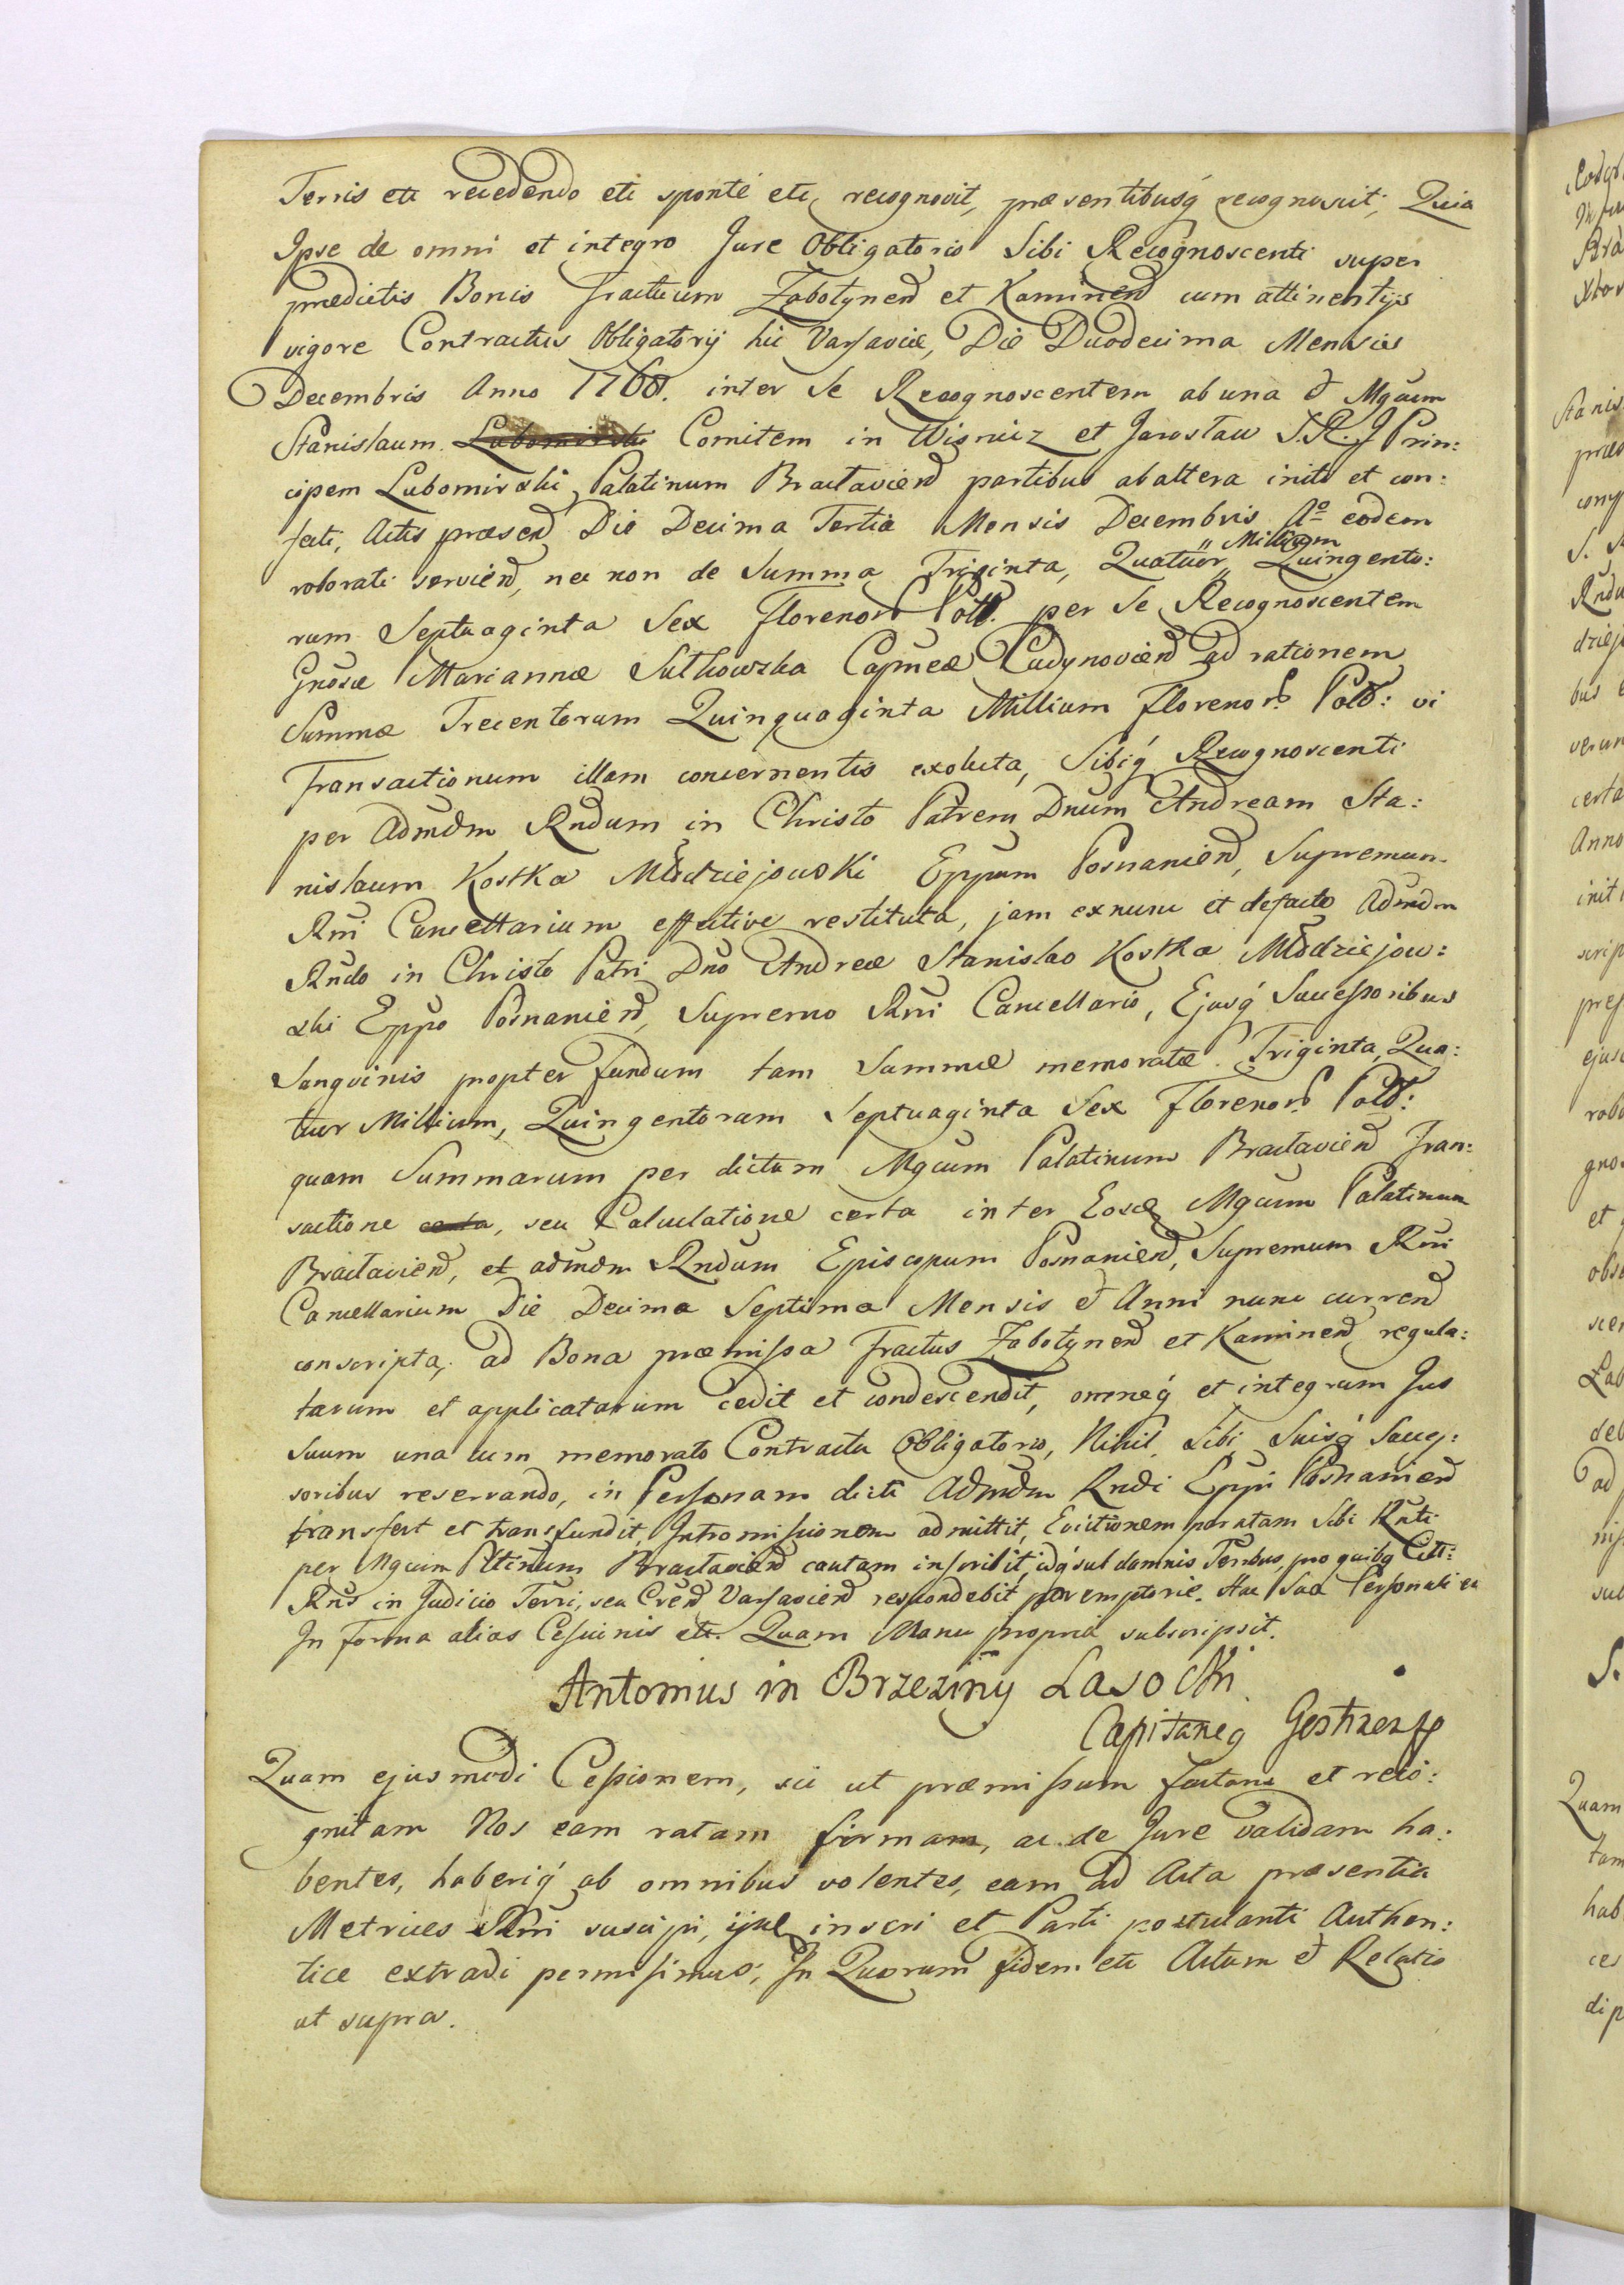 Terris etc recedendo etc sponté etc, recognovit, præsentibusq́ recognoscit; Quia
Ipse de omni et integro Jure Obligatorio Sibi Recognoscenti super
prædictis Bonis Tractuum Zabotynen͠ et Kaminen͠ cum attinentijs
vigore Contractus Obligatorij hic Varsaviæ, Die Duodecima Mensis
Decembris Anno 1768. inter Se Recognoscentem ab una & Mgcum
Stanislaum Lubomirski Comitem in Wisnicz et Jaroslaw S.R.J Prin:
cipem Lubomirski, Palatinum Braclavien͠ partibus ab altera initi et con:
fecti, Actis præsen͠ Die Decima Tertia Mensis Decembris Aº eodem
roborati servien͠, nec non de Summa Triginta, Quatuor „ Millium „ Quingento:
rum Septuaginta Sex Florenor͠ Poll. per Se Recognoscentem
Gnosæ Mariannæ Sutkowska Capneæ Ladynovien͠ ad rationem
Summæ Trecentorum Quinquaginta Millium Florenor͠ Poll: vi
Transactionum illam concernentis exoluta, Sibiq́ Recognoscenti
per Admdm Rndum in Christo Patrem Dnum Andream Sta:
nislaum Kostka Młodziejowski Eppum Posnanien͠, Supremum
Rni Cancellarium effective restituta, jam ex nunc et de facto Admdm
Rndo in Christo Patri Dno Andreæ Stanislao Kostka Młodziejow:
ski Eppo Posnanien͠, Supremo Rni Cancellario, Ejusq́ Successoribus
Sangvinis propter fundum tam Summæ memoratæ Triginta, Qua:
tuor Millium, Quingentorum Septuaginta Sex Florenor͠ Poll:
quam Summarum per dictum Mgcum Palatinum Braclavien͠ Tran:
sactione certa, seu Calculatione certa inter Eosd͠ Mgcum Palatinum
Braclavien͠, et admdm Rndum Episcopum Posnanien͠, Supremum Rni
Cancellarium Die Decima Septima Mensis & Anni nunc curren͠
conscripta, ad Bona præmissa Tractus Zabotynen͠ et Kaminen͠ regula:
tarum et applicatarum cedit et condescendit, omneq́ et integrum Jus
Suum una cum memorato Contractu Obligatorio, Nihil Sibi Suisq́ Succes:
soribus reservando, in Personam dicti Admdm Rndi Eppi Posnanien͠
transfert et transfundit, Intromissionem admittit, Evictionem paratam Sibi Rnti
per Mgcum Pltinum Braclavien͠ cautam inscribit, idq́ sub damnis Terribus, pro quibq Citt:
Rns in Judicio Terri, seu Cren͠ Varsavien͠ respondebit peremptorie. Hac Sua Personali etc
In forma alias Cessionis etc. Quam Manu propria subscripsit.
Antonius in Brzeziny Lasocki
Capitaneg Gostinen͠
Quam ejusmodi Cessionem, sic ut præmissum factam et reco:
gnitam Nos eam ratam firmam, ac de Jure validam ha:
bentes, haberiq́ ab omnibus volentes, eam ad Acta præsentia
Metrices Rni suscipi, ijsq́ inscri et Parti postulanti Authen:
tice extradi permisimus; In Quorum fidem etc Actum & Relatio
ut supra.